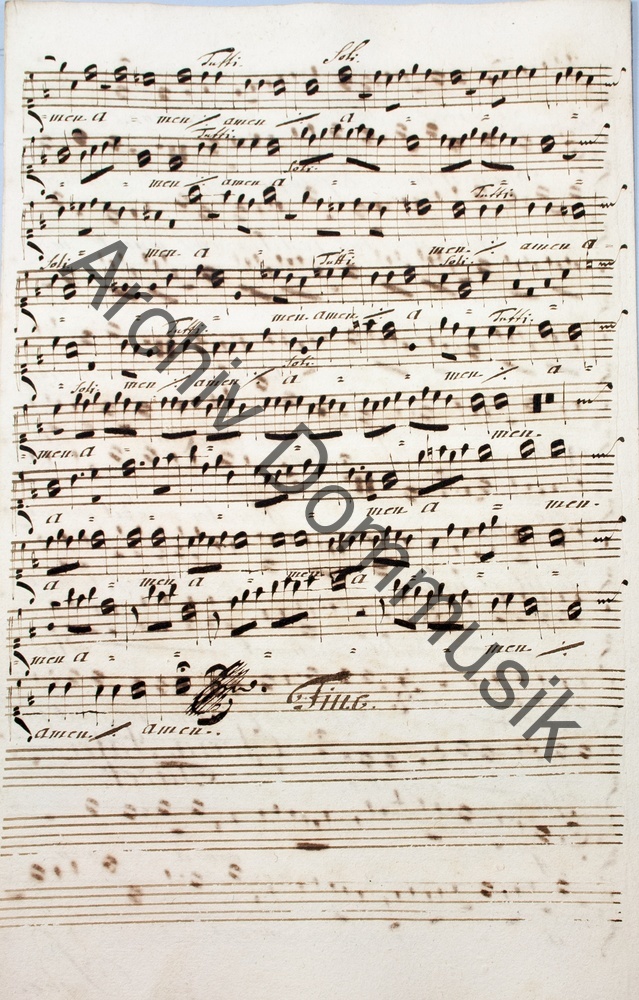 Tutti. Soli.
men a men ⁒ amen ⁒ a
Tutti. Soli.
men ⁒ amen a
Tutti.
men a men ⁒ amen a
Soli. Tutti. Soli.
men amen ⁒ a
Tutti. Soli. Tutti.
men ⁒ amen ⁒ a men ⁒ a
Soli.
men a men.
a men a men.
a men a men a
men a men ⁒
Fine.
amen ⁒ amen.
Archiv Dommusik